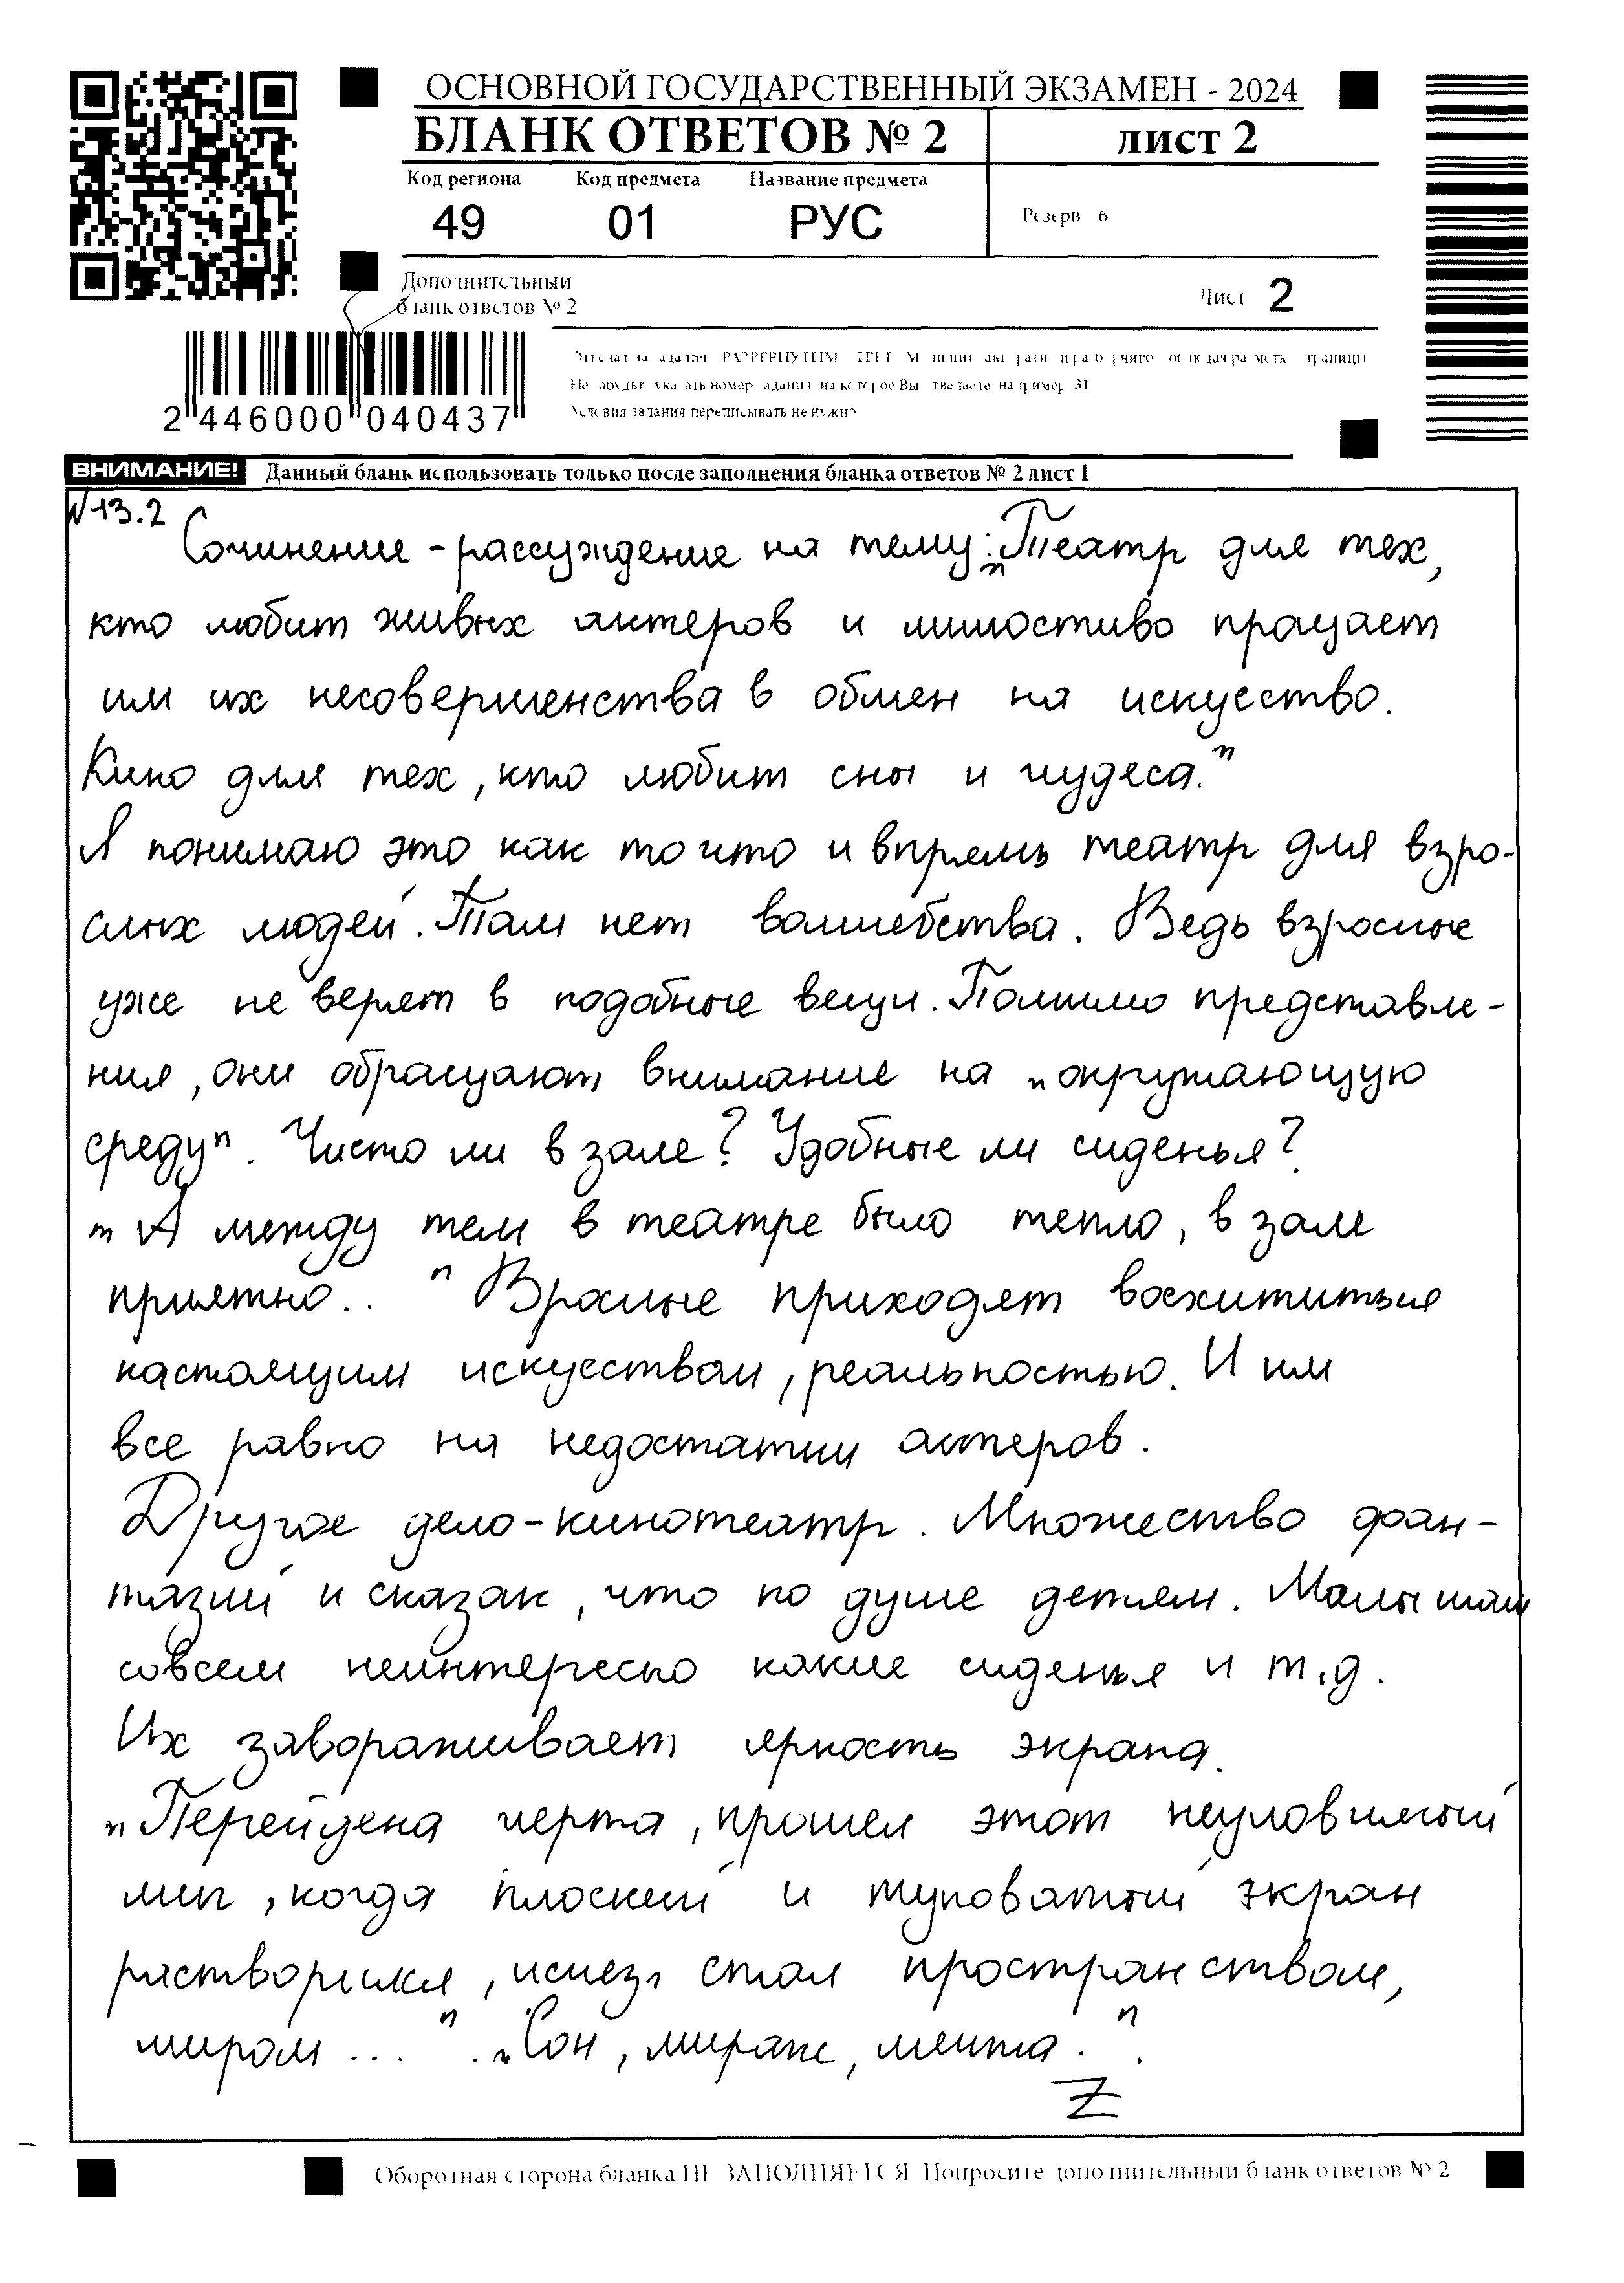 ОСНОВНОЙ ГОСУДАРСТВЕННЫЙ ЭКЗАМЕН - 2024
БЛАНК ОТВЕТОВ № 2
лист 2
Код региона Код предмета Название предмета
49 01 РУС
Резерв 6
Дополнительный
бланк ответов № 2
Лист 2
2 446000 040437
Условия задания переписывать не нужно
ВНИМАНИЕ! Данный бланк использовать только после заполнения бланка ответов № 2 лист 1
№13.2
Сочинение - рассуждение на тему: „Театр для тех,
кто любит живых актеров и милостиво прощает
им их несовершенства в обмен на искусство.
Кино для тех, кто любит сны и чудеса."
Я понимаю это как то что и впрямь театр для взро-
слых людей. Там нет волшебства. Ведь взрослые
уже не верят в подобные вещи. Помимо представле-
ния, они обращают внимание на „окружающую
среду". Чисто ли в зале? Удобные ли сиденья?
„А между тем в театре было тепло, в зале
приятно.. " Врослые приходят восхититься
настоящим искусством, реальностью. И им
все равно на недостатки актеров.
Другое дело - кинотеатр. Множество фан-
тазий и сказак, что по душе детям. Малышам
совсем неинтересно какие сиденья и т.д.
Их завораживает яркость экрана.
„Перейдена черта, прошел этот неуловимый
миг, когда плоский и туповатый экран
растворился, исчез, стал пространством,
миром ... " . „Сон, мираж, мечта . " .
Z
Оборотная сторона бланка НЕ ЗАПОЛНЯЕТСЯ Попросите дополнительный бланк ответов № 2